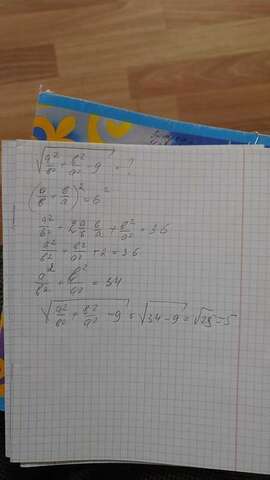 √(a²/b² + b²/a² - 9) = ?
(a/b + b/a)² = 6²
a²/b² + 2 a/b · b/a + b²/a² = 36
a²/b² + b²/a² + 2 = 36
a²/b² + b²/a² = 34
√(a²/b² + b²/a² - 9) = √(34-9) = √25 = 5